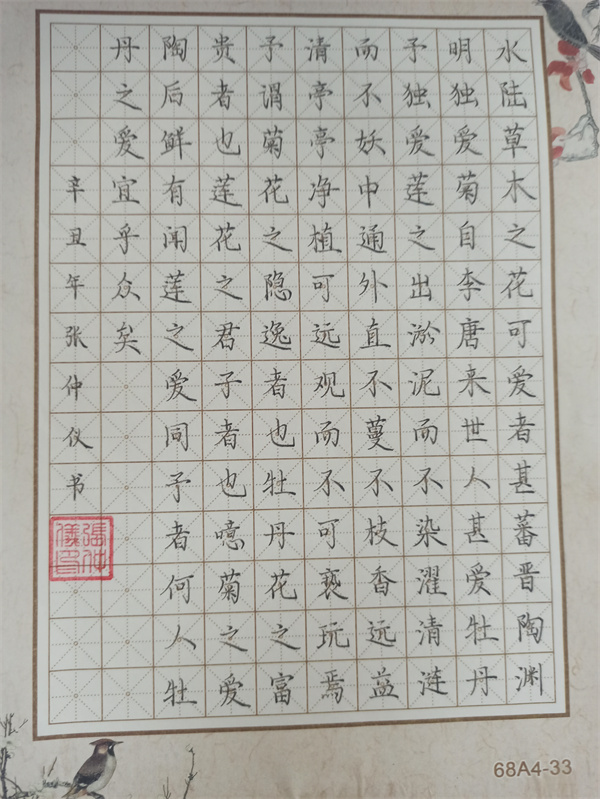 水陆草木之花可爱者甚蕃晋陶渊
明独爱菊自李唐来世人甚爱牡丹
予独爱莲之出淤泥而不染濯清涟
而不妖中通外直不蔓不枝香远益
清亭亭净植可远观而不可亵玩焉
予谓菊花之隐逸者也牡丹花之富
贵者也莲花之君子者也噫菊之爱
陶后鲜有闻莲之爱同予者何人牡
丹之爱宜乎众矣
辛丑年张仲仪书
張仲儀印
68A4-33